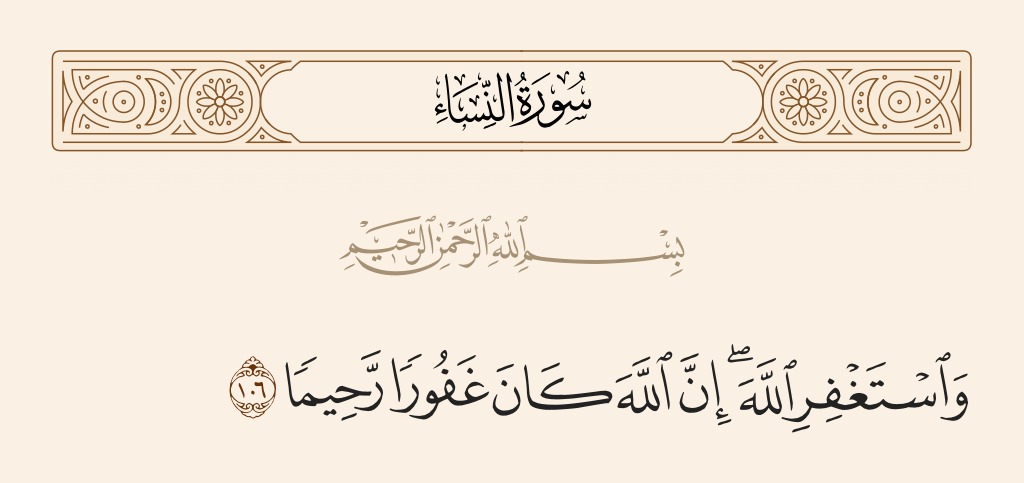 سُورَةُ النِّسَاءِ
بِسْمِ ٱللَّهِ ٱلرَّحْمَٰنِ ٱلرَّحِيمِ
وَٱسْتَغْفِرِ ٱللَّهَ ۖ إِنَّ ٱللَّهَ كَانَ غَفُورًا رَّحِيمًا ١٠٦